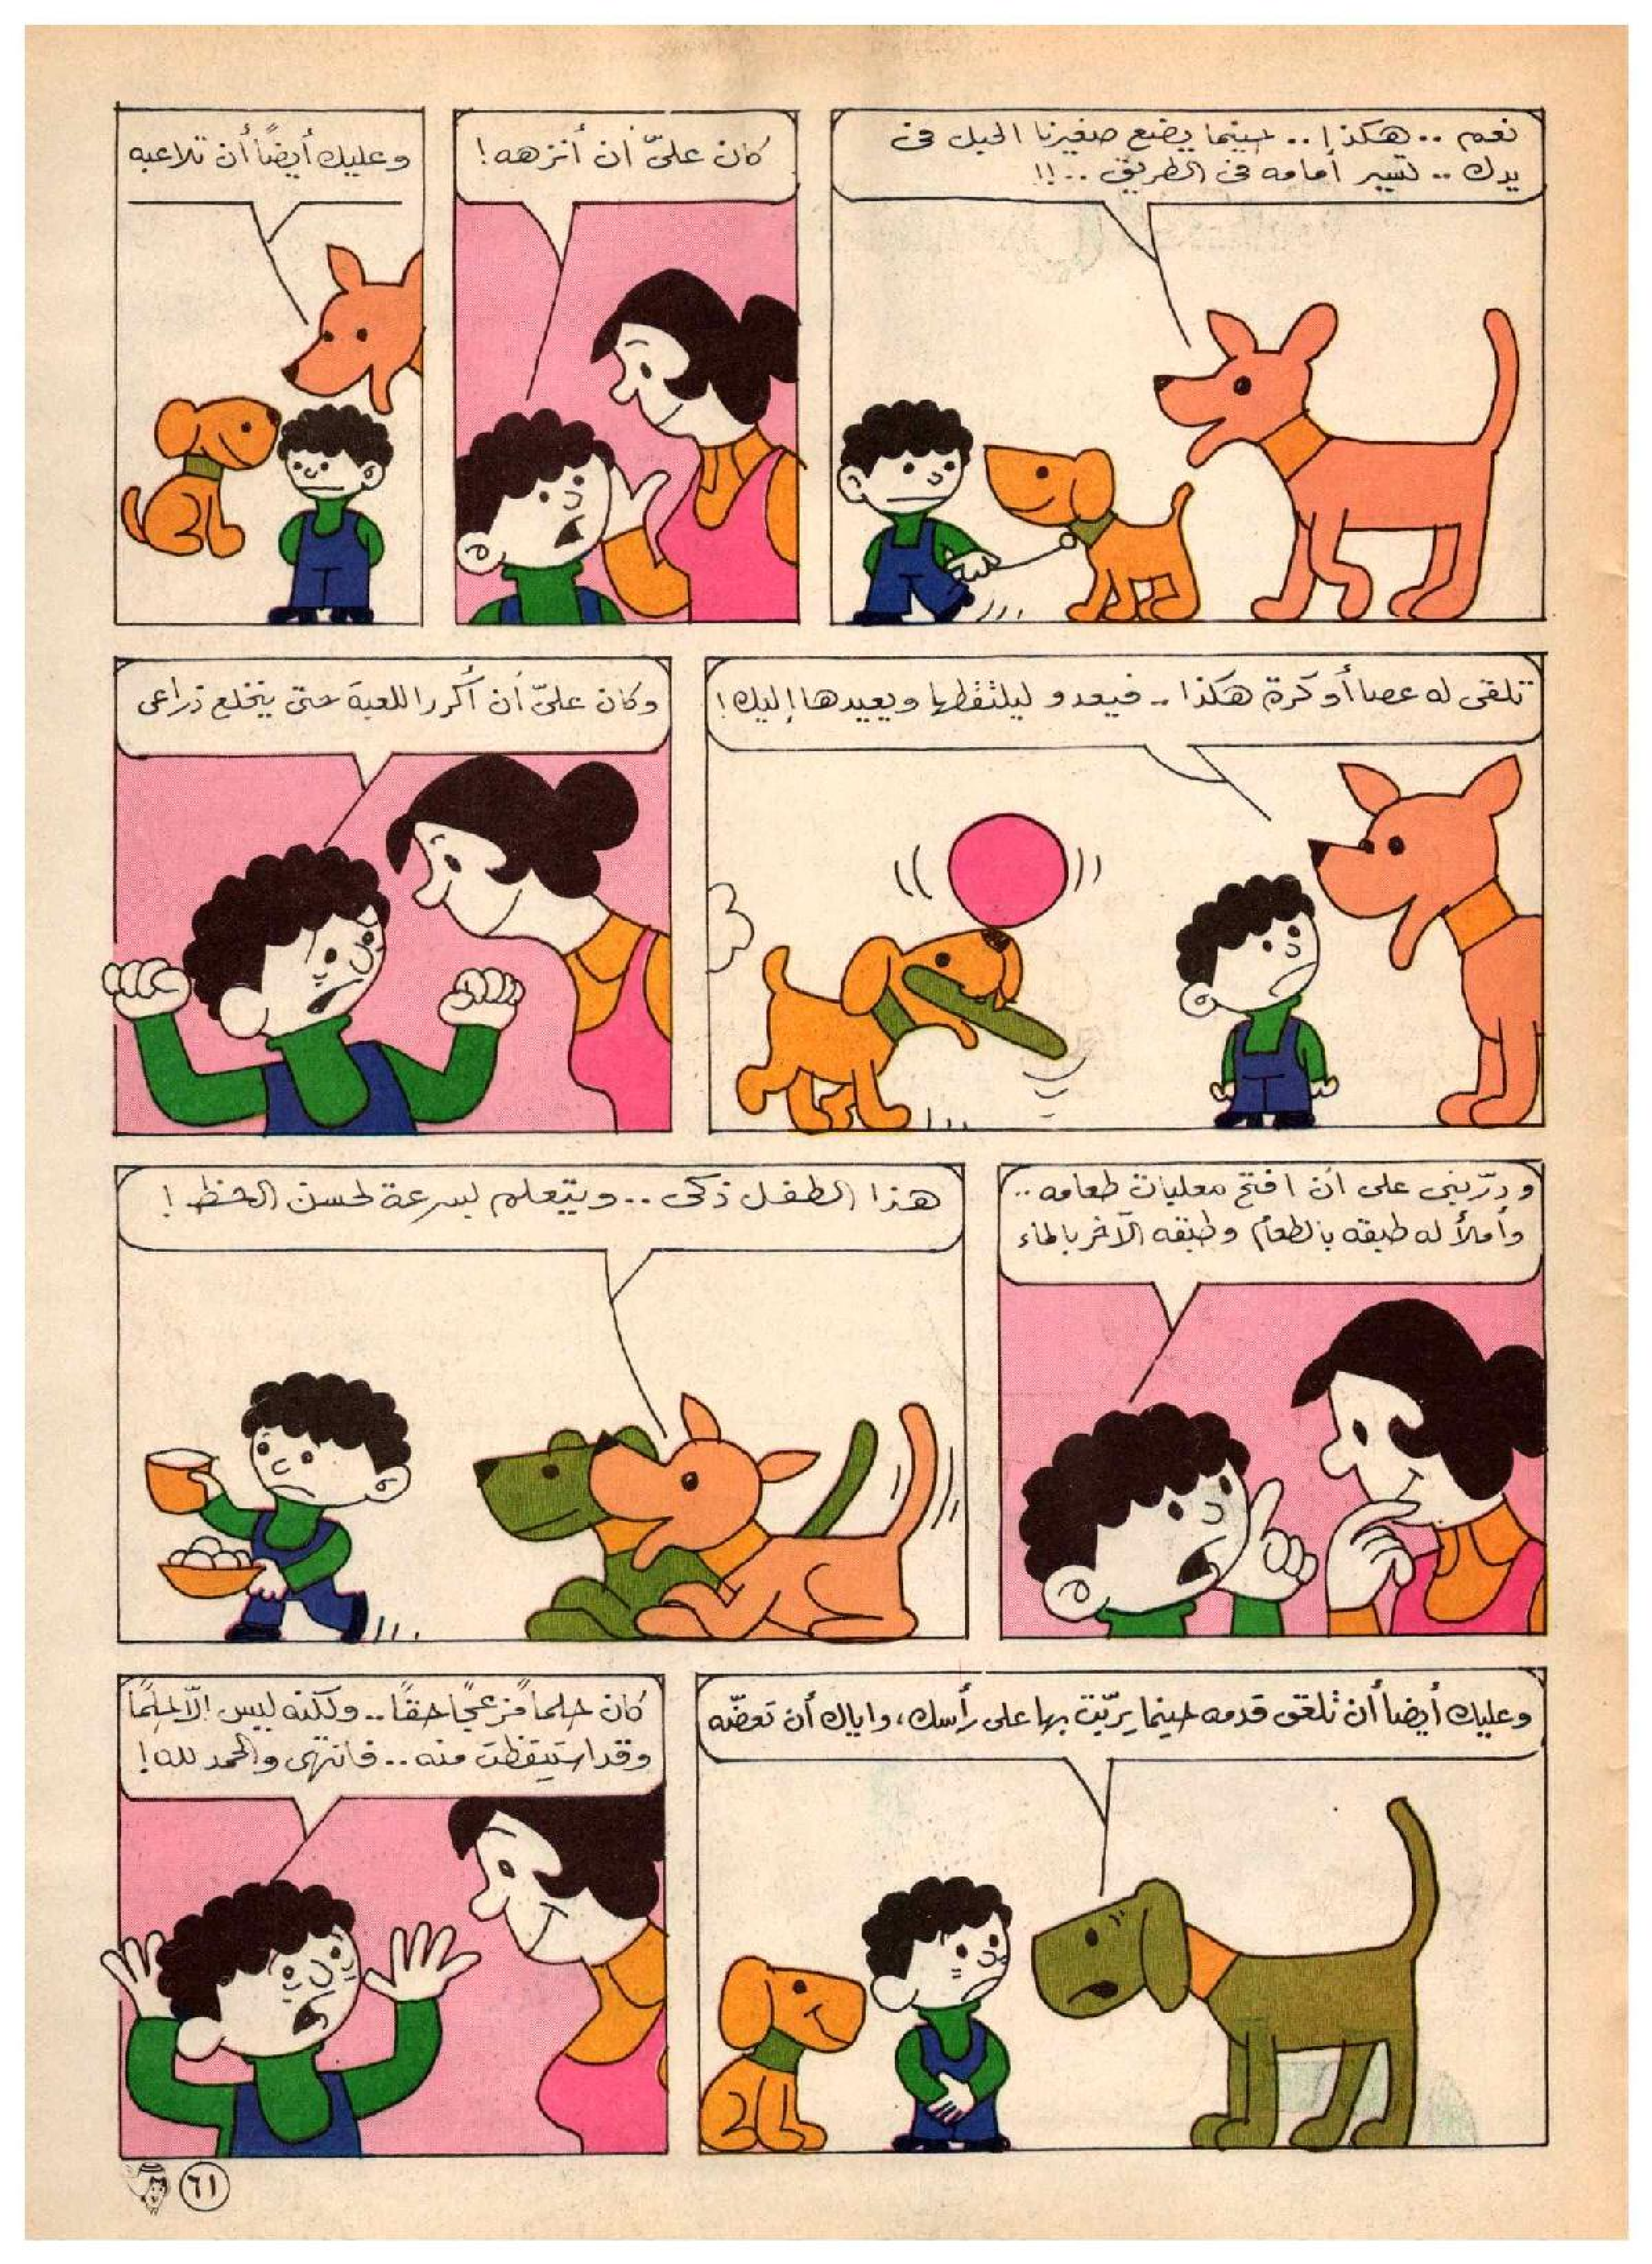 نعم .. هكذا .. حينما يضع صغيرنا الحبل فى
يدك .. تسير أمامه فى الطريق ..!!
كان علىّ أن أنزهه !
وعليك أيضاً أن تلاعبه
تلقى له عصا أو كرة هكذا .. فيعدو ليلتقطها ويعيدها إليك !
وكان علىّ أن أكرر اللعبة حتى ينخلع ذراعى
ودرّبنى على أن افتح معلبات طعامه ..
وأملأ له طبقه بالطعام وطبقه الآخر بالماء
هذا الطفل ذكى .. ويتعلم بسرعة لحسن الحظ !
وعليك أيضاً أن تلعق قدمه حينما يربّت بها على رأسك، واياك أن تعضّه
كان حلماً مزعجاً حقاً .. ولكنه ليس الّا حلمًا
وقد استيقظت منه .. فانتهى والحمد لله !
٦١